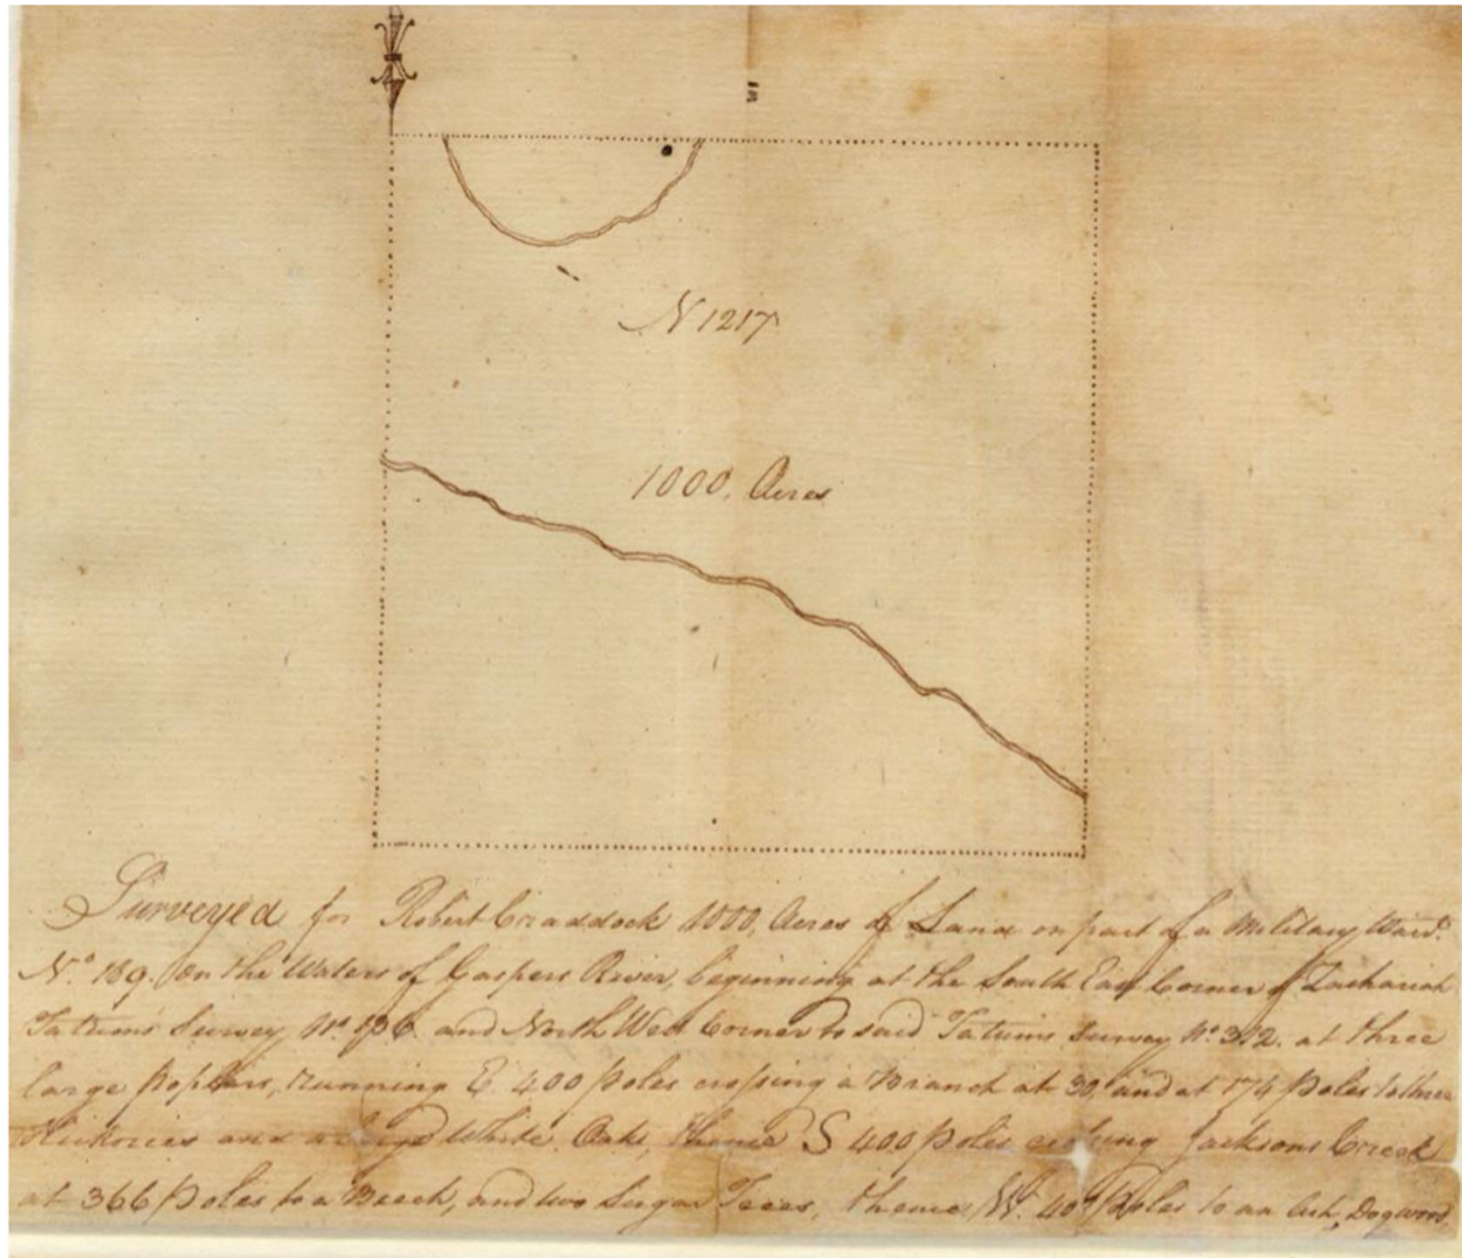 N 1217
1000, Acres
Surveyed for Robert Craddock 1000, Acres of Land on part of a Military Warrt.
No. 189. on the Waters of Gaspers River, beginning at the South East Corner of Zachariah
Tatums Survey No. and North West Corner to said Tatums Survey No. 312. at three
large poplars, running E. 400 poles crossing a Branch at 30, and at 174 poles to three
Hickories and a large White Oak, thence S 400 poles crossing Jacksons Creek
at 366 poles to a Beech, and two Sugar Trees, thence W. 400 poles to an Ash, Dogwood,